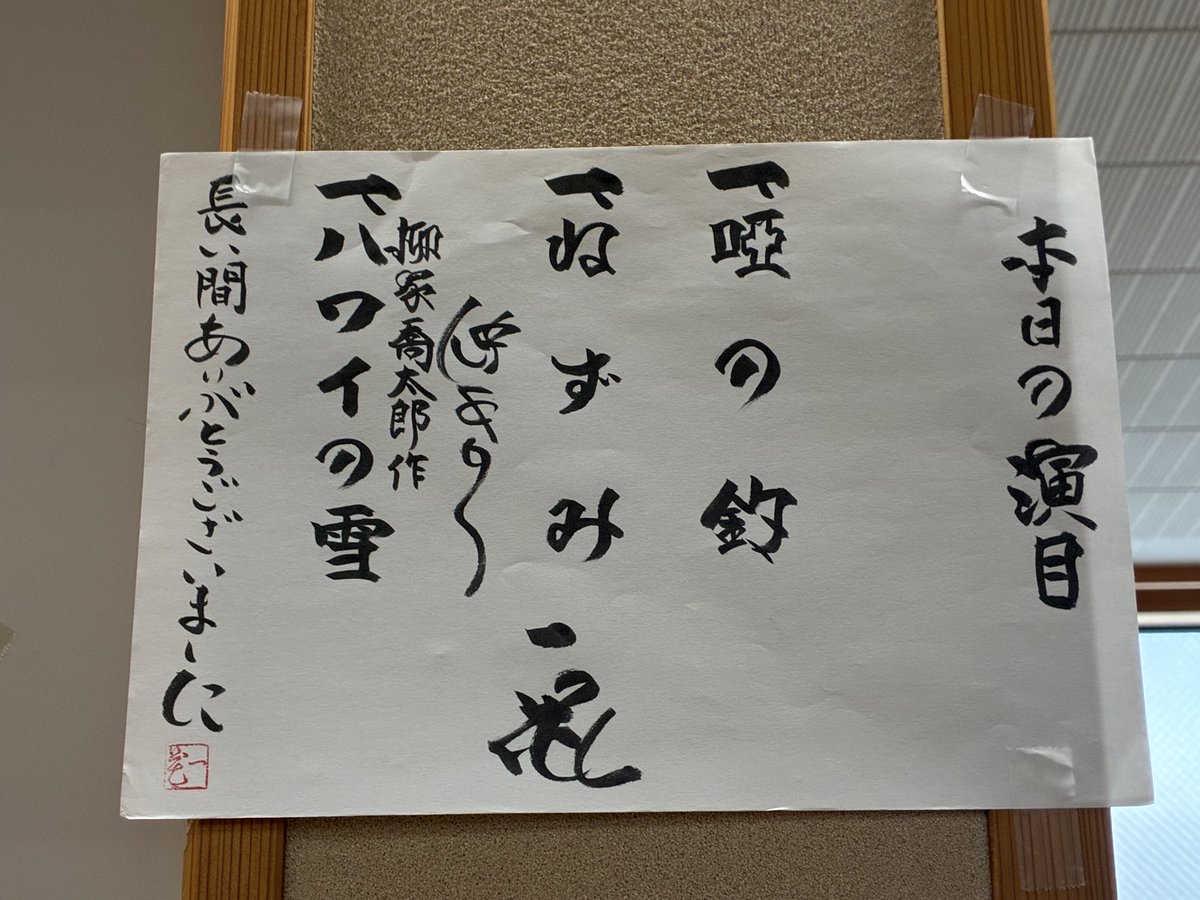 本日の演目
一、啞の釣
一、ねずみ
一花
仲入り
柳家喬太郎作
一、ハワイの雪
長い間ありがとうございました